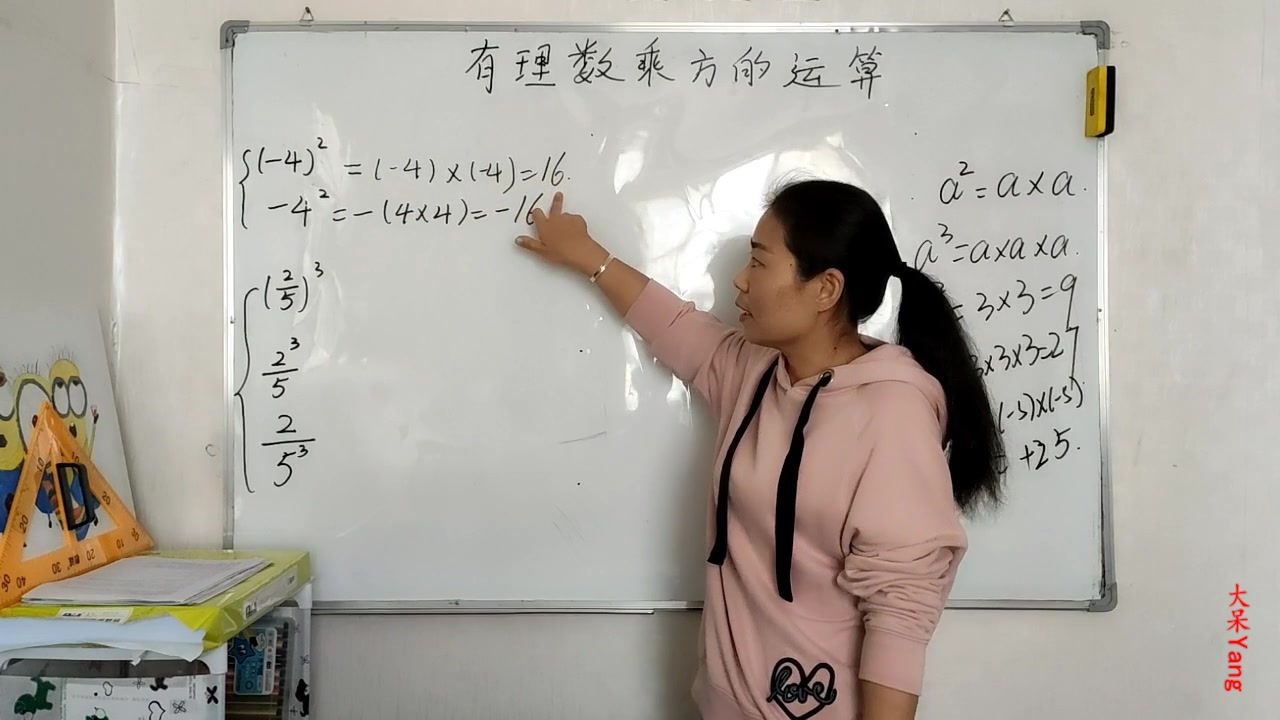 有理数乘方的运算
(-4)² = (-4)×(-4)=16.
-4² = -(4×4)= -16
(2/5)³
2³/5
2/5³
a²=a×a.
a³=a×a×a.
= 3×3=9
3×3×3=27
(-5)×(-5)
= +25.
love
大呆Yang